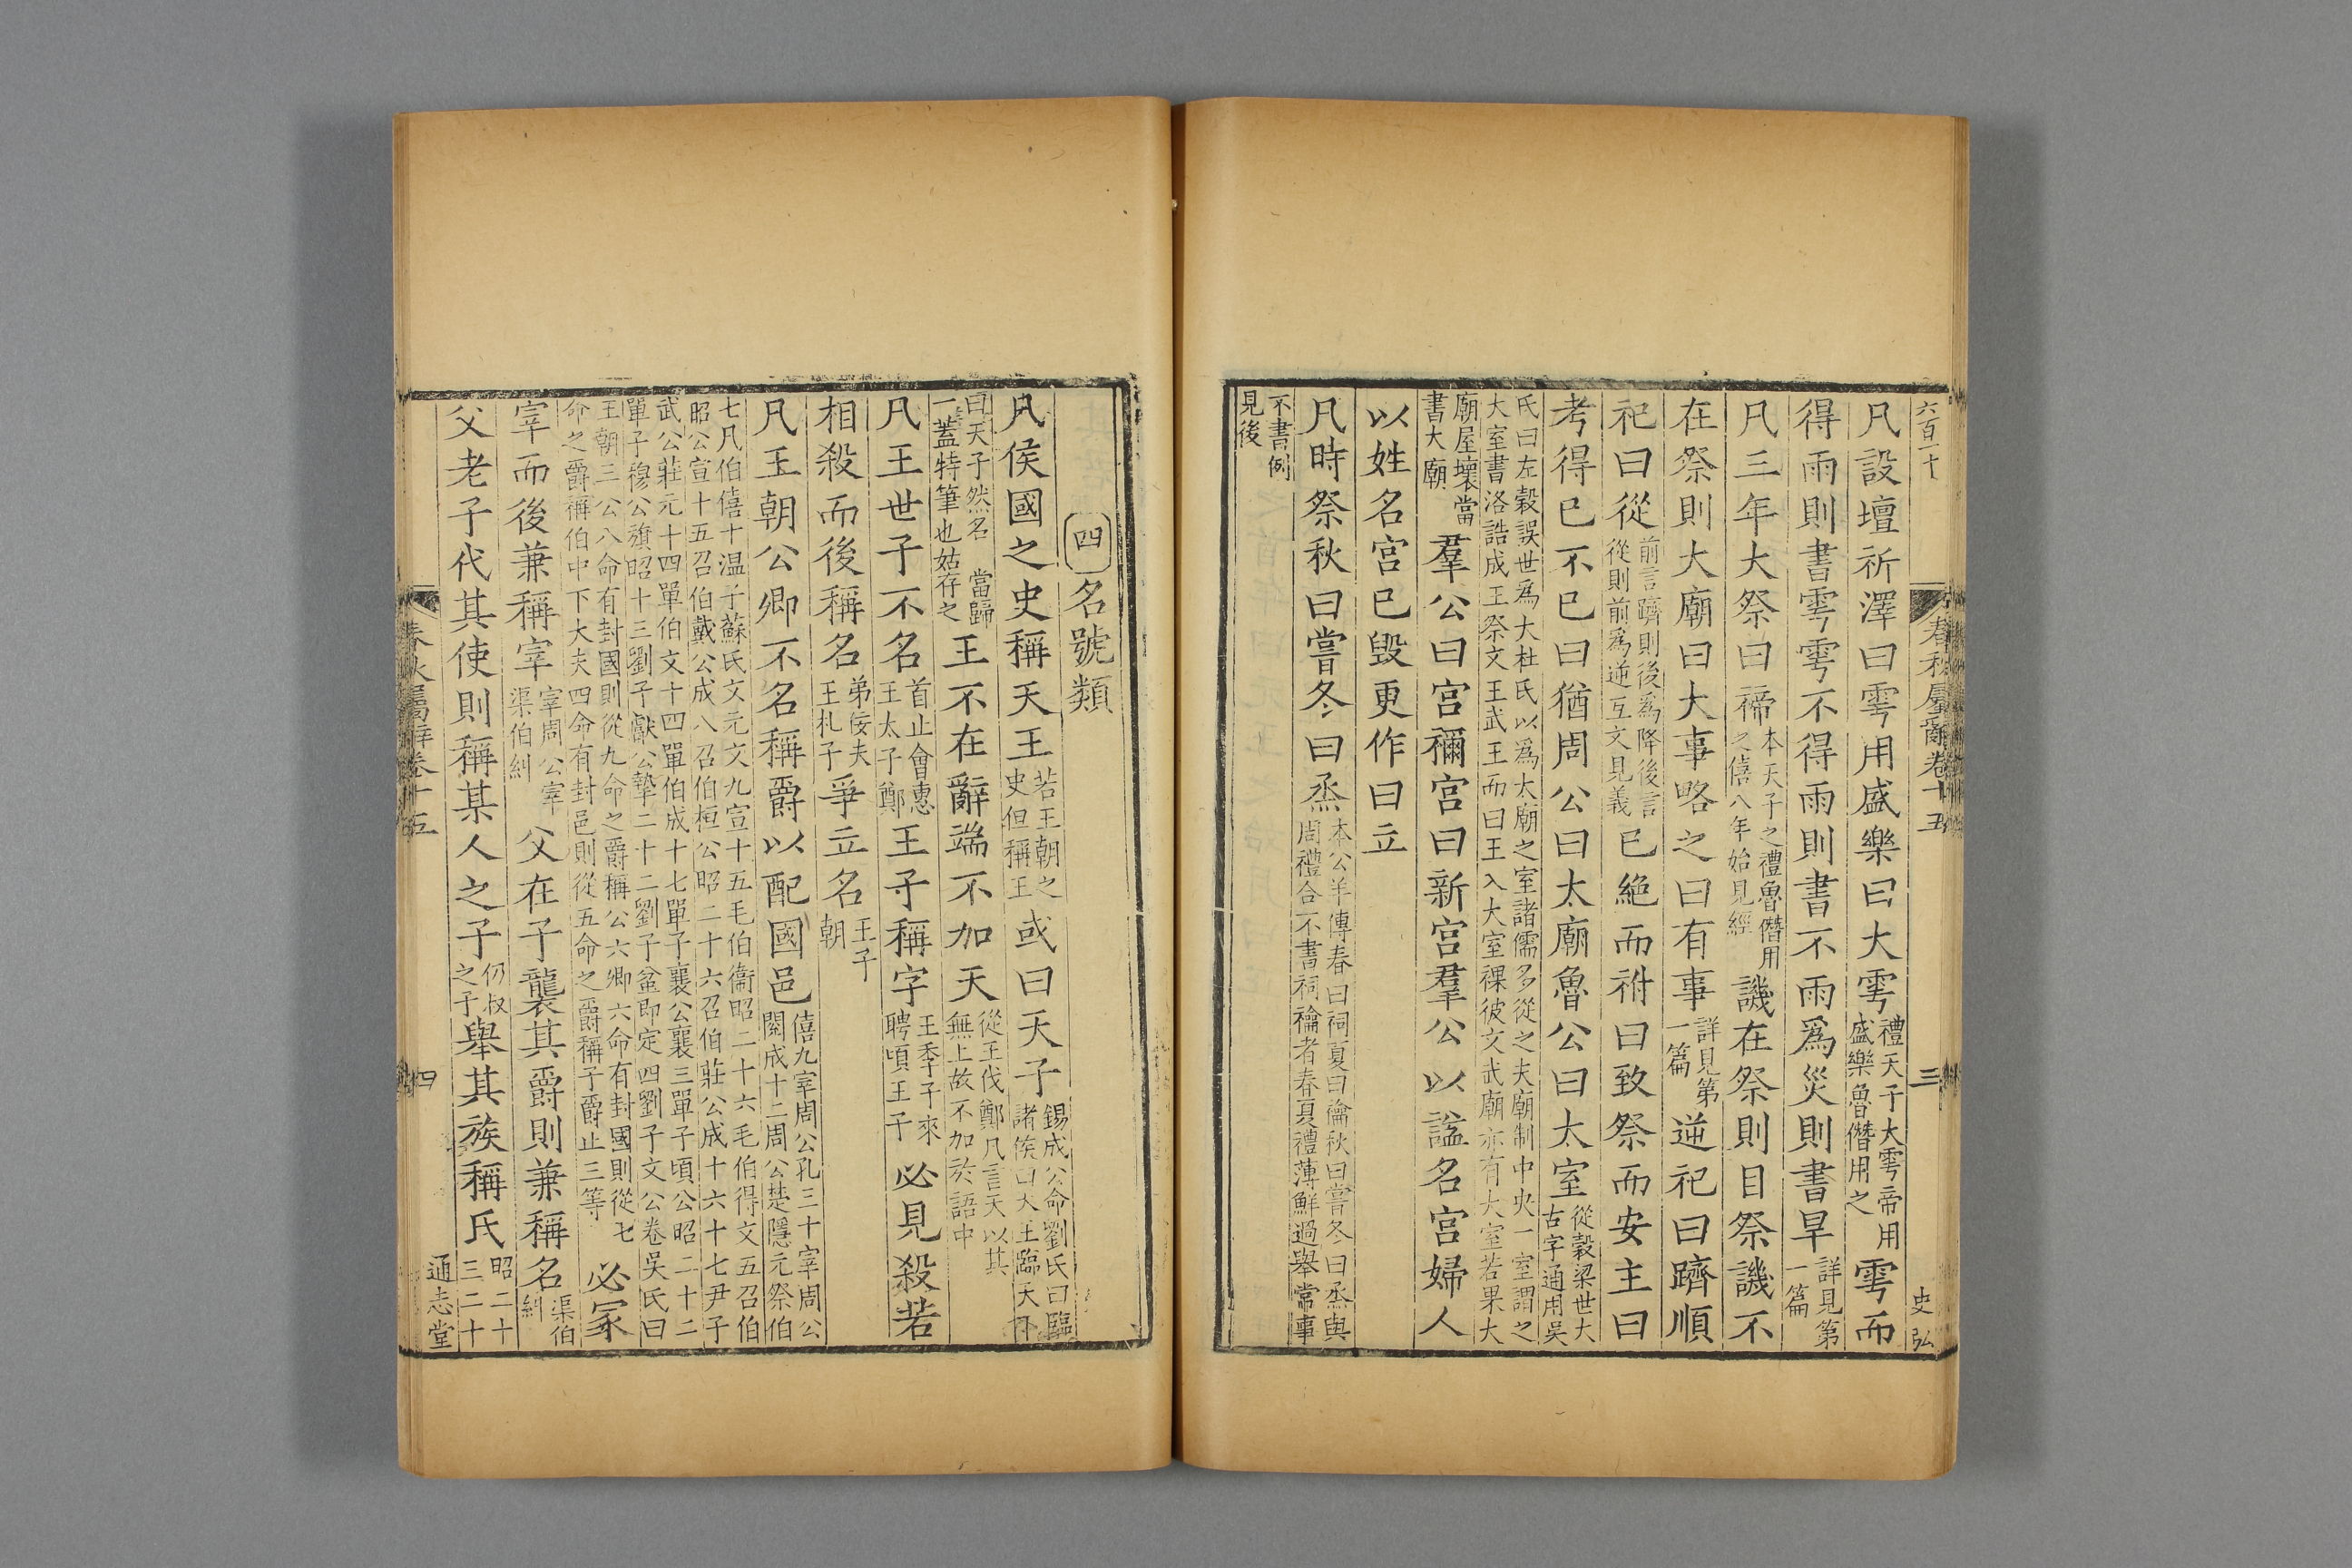 六百一十
春秋屬辭卷十五
三
史弘
凡設壇祈澤曰雩用盛樂曰大雩禮天子大雩帝用盛樂魯僭用之雩而
得雨則書雩雩不得雨則書不雨爲災則書旱詳見第一篇
凡三年大祭曰禘本天子之禮魯僭用之僖八年始見經譏在祭則目祭譏不
在祭則大廟曰大事略之曰有事詳見第一篇逆祀曰躋順
祀曰從前言躋則後爲降後言從則前爲逆互文見義已絕而祔曰致祭而安主曰
考得已不已曰猶周公曰太廟魯公曰太室從穀梁世大古字通用吳
氏曰左穀誤世爲大杜氏以爲太廟之室諸儒多從之夫廟制中央一室謂之大室書洛誥成王祭文王武王而曰王入大室祼彼文武廟亦有大室若果大
廟屋壞當書大廟羣公曰宮禰宮曰新宮羣公以謚名宮婦人
以姓名宮已毀更作曰立
凡時祭秋曰嘗冬曰烝本公羊傳春曰祠夏曰禴秋曰嘗冬曰烝與周禮合不書祠禴者春夏禮薄鮮過舉常事
不書例見後
四 名號類
凡侯國之史稱天王若王朝之史但稱王或曰天子錫成公命劉氏曰臨諸侯曰天王臨天下
曰天子然名一蓋特筆也姑存之當歸王不在辭端不加天從王伐鄭凡言天以其無上故不加於語中
凡王世子不名首止會惠王太子鄭王子稱字王季子來聘頃王子必見殺若
相殺而後稱名弟佞夫王札子爭立名王子朝
凡王朝公卿不名稱爵以配國邑僖九宰周公孔三十宰周公閱成十二周公楚隱元祭伯
七凡伯僖十温子蘇氏文元文九宣十五毛伯衞昭二十六毛伯得文五召伯昭公宣十五召伯戴公成八召伯桓公昭二十六召伯莊公成十六十七尹子
武公莊元十四單伯文十四單伯成十七單子襄公襄三單子頃公昭二十二單子穆公旗昭十三劉子獻公摯二十二劉子盆即定四劉子文公卷吳氏曰
王朝三公八命有封國則從九命之爵稱公六卿六命有封國則從七命之爵稱伯中下大夫四命有封邑則從五命之爵稱子爵止三等必冡
宰而後兼稱宰宰周公宰渠伯糾父在子襲其爵則兼稱名渠伯糾
父老子代其使則稱某人之子仍叔之子舉其族稱氏昭二十三二十
春秋屬辭卷十五
四
通志堂